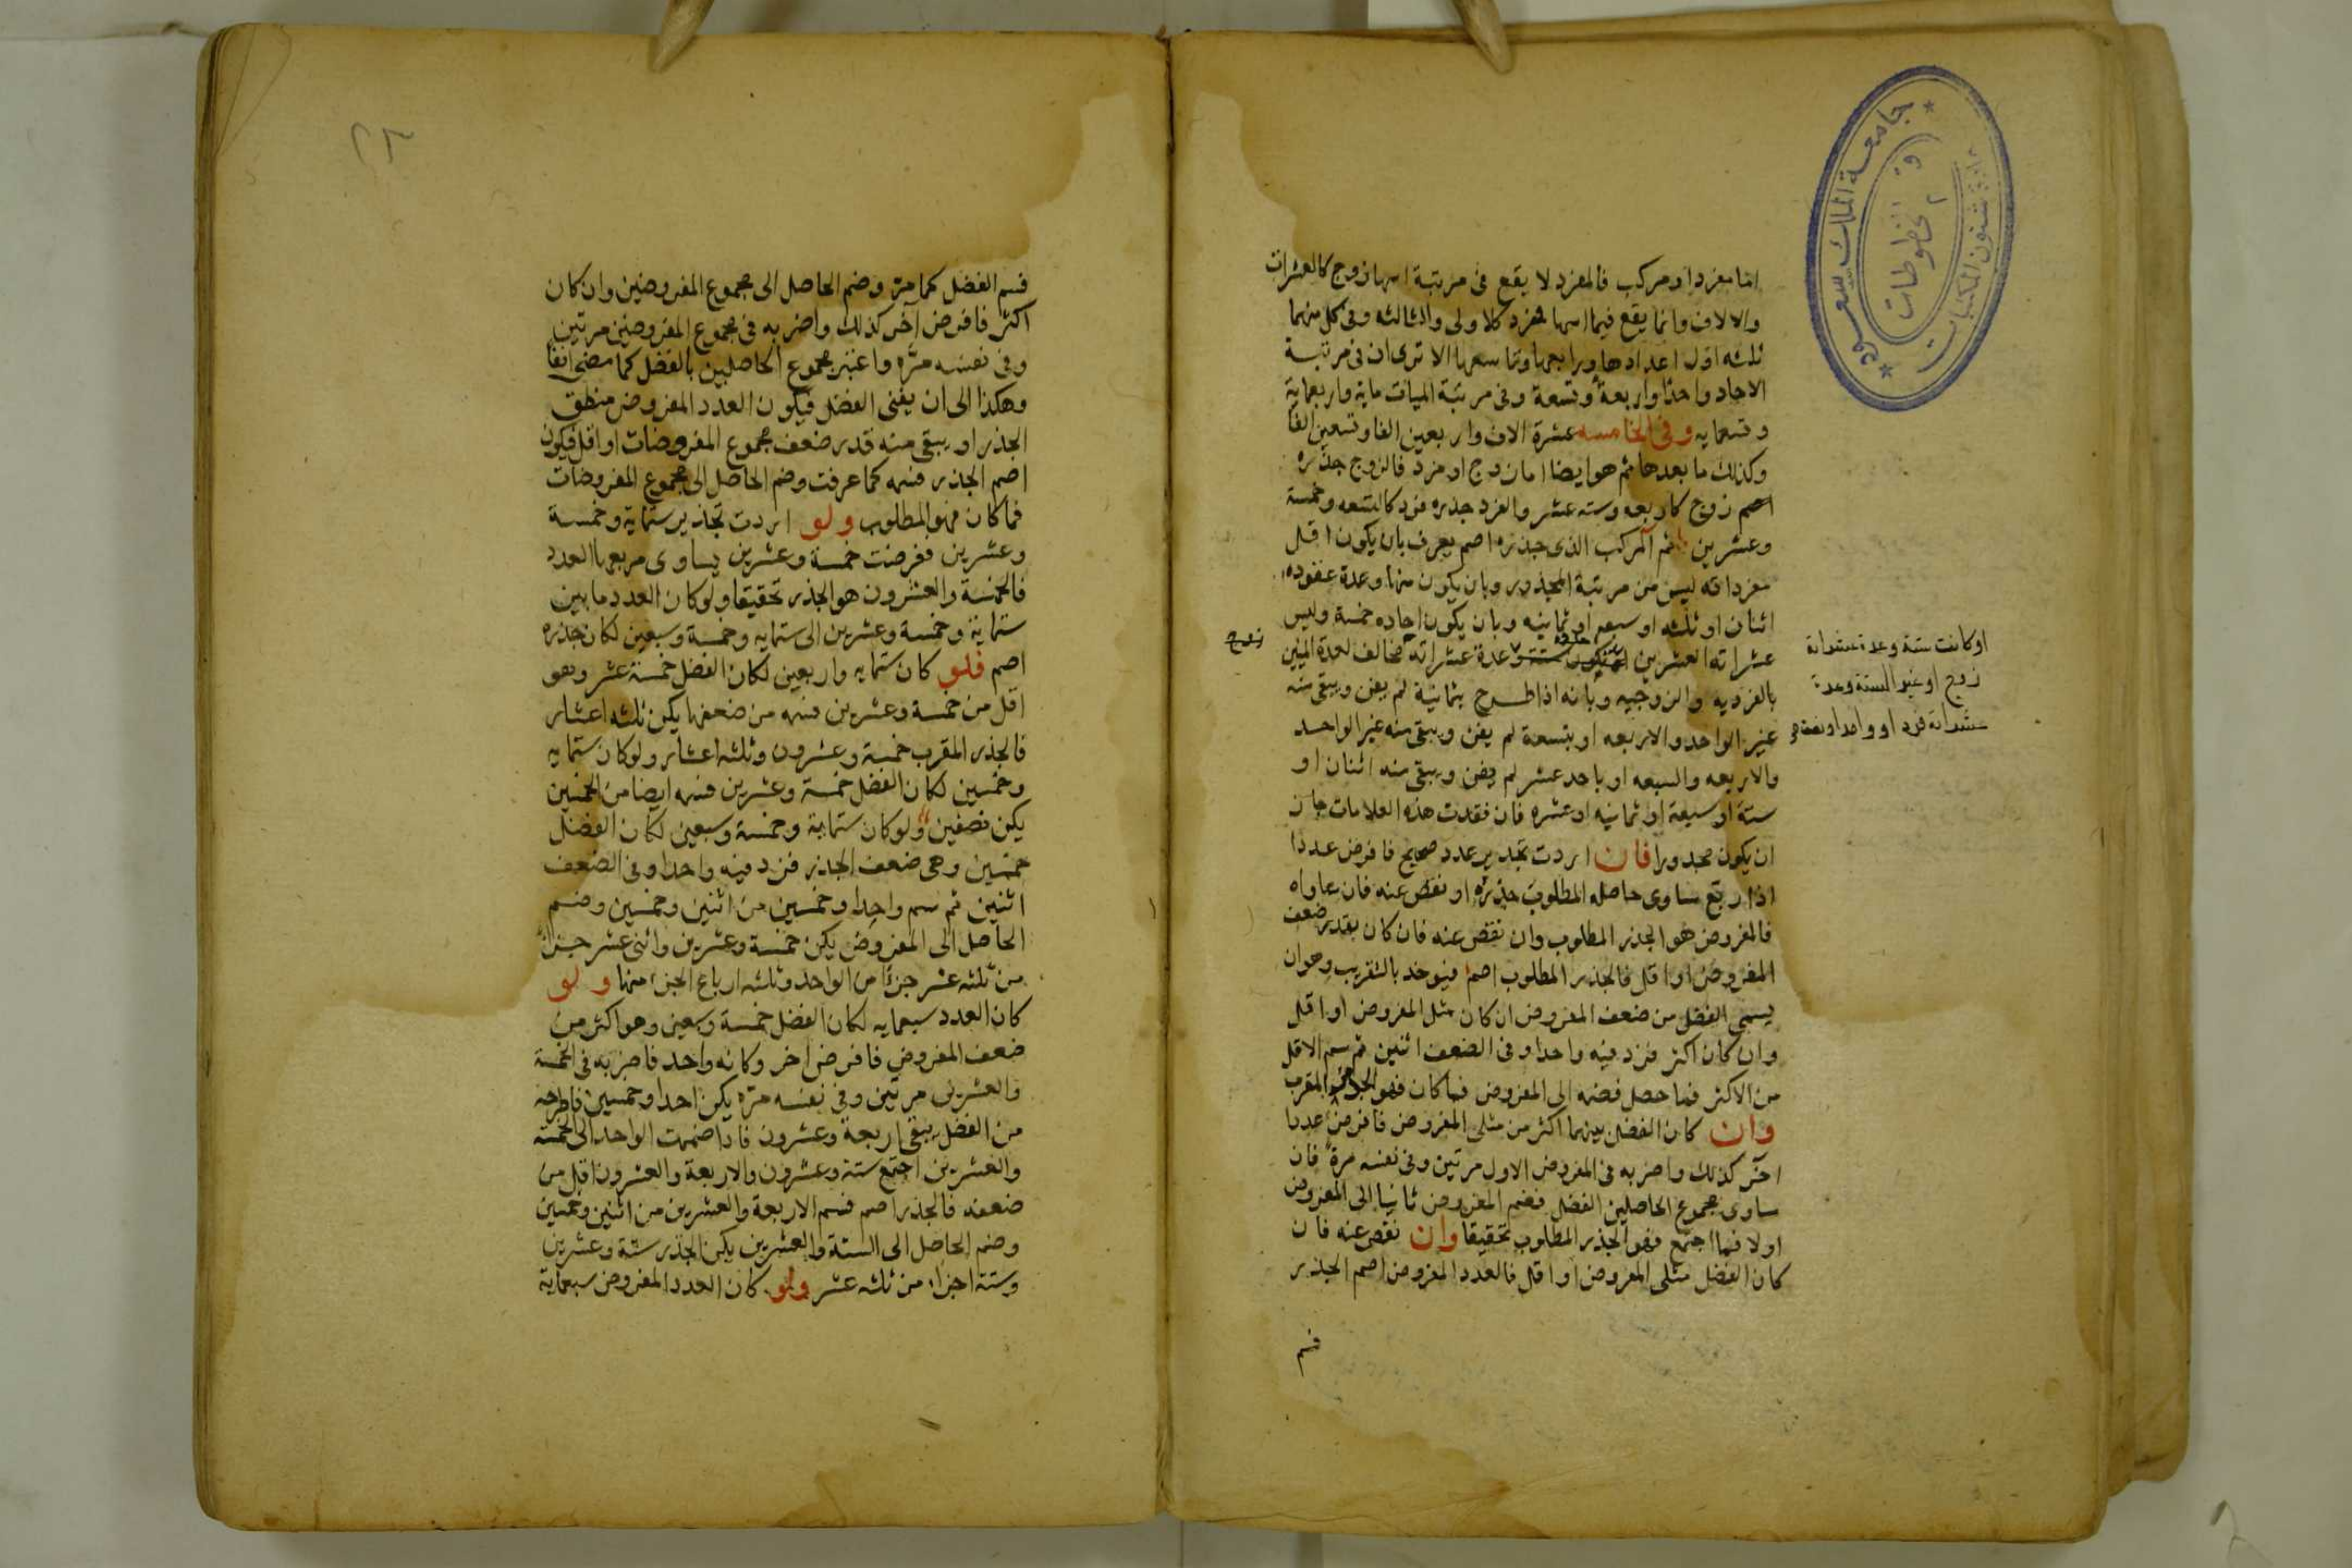 اما مفرد او مركب فالمفرد لا يقع فى مرتبة اسها زوج كالعشرات
والالاف وانما يقع فيما اسها مفرد كالاولى والثالثه وفى كل منهما
ثلثه اول اعدادها ورابعها وتاسعها الا ترى ان فى مرتبة
الاحاد واحدا واربعة وتسعة وفى مرتبة الميات ماية واربعماية
وتسعمايه وفى الخامسه عشرة الاف واربعين الفا وتسعين الفا
وكذلك ما بعدها ثم هو ايضا اما زوج او فرد فالزوج جذره
اصم زوج كاربعه وسته عشر والفرد جذره فرد كالتسعه وخمسة
وعشرين ثم المركب الذى جذره اصم يعرف بان يكون اقل
مفرداته ليس من مرتبة المجذور وبان يكون منها وعدة عقوده
اثنان او ثلثه او سبعه او ثمانيه وبان يكون احاده خمسة وليس
عشراته العشرين وعدة عشراته مخالف لعدة المئين
بالفرديه والزوجيه وبانه اذا طرح بثمانية لم يفن ويبقى منه
غير الواحد والاربعه او بتسعة لم يفن ويبقى منه غير الواحد
والاربعه والسبعه او باحد عشر لم يفن ويبقى منه اثنان او
ستة او سبعة او ثمانيه او عشره فان فقدت هذه العلامات جاز
ان يكون مجذورا فان اردت تجذير عدد صحيح فافرض عددا
اذا ربع ساوى حاصله المطلوب جذره او نقص عنه فان ساواه
فالمفروض هو الجذر المطلوب وان نقص عنه فان كان بقدر ضعف
المفروض او اقل فالجذر المطلوب اصم فيوخذ بالتقريب وهو ان
يسمى الفضل من ضعف المفروض ان كان مثل المفروض او اقل
وان كان اكثر فزد فيه واحدا وفى الضعف اثنين ثم سم الاقل
من الاكثر فما حصل فضمه الى المفروض فما كان فهو الجذر المقرب
وان كان الفضل بينهما اكثر من مثلى المفروض فافرض عددا
اخر كذلك واضربه فى المفروض الاول مرتين وفى نفسه مرة فان
ساوى مجموع الحاصلين الفضل فضم المفروض ثانيا الى المفروض
اولا فما اجتمع فهو الجذر المطلوب تحقيقا وان نقص عنه فان
كان الفضل مثلى المفروض او اقل فالعدد المفروض اصم الجذر
فسم
او كانت ستة وعدة عشراته
زوج او غير الستة وعدة
عشراته فرد او واحدا
زوج
جامعة الملك سعود
عمادة شئون المكتبات
مخطوطات
٢٣
فسم الفضل كما مر وضم الحاصل الى مجموع المفروضين وان كان
اكثر فافرض اخر كذلك واضربه فى مجموع المفروضين مرتين
وفى نفسه مره واعتبر مجموع الحاصلين بالفضل كما مضى انفا
وهكذا الى ان يفنى الفضل فيكون العدد المفروض منطق
الجذر او يبقى منه قدر ضعف مجموع المفروضات او اقل فيكون
اصم الجذر فسمه كما عرفت وضم الحاصل الى مجموع المفروضات
فما كان فهو المطلوب ولو اردت تجذير ستماية وخمسة
وعشرين ففرضت خمسة وعشرين يساوى مربعها العدد
فالخمسة والعشرون هو الجذر تحقيقا ولو كان العدد ما بين
ستماية وخمسة وعشرين الى ستمايه وخمسة وسبعين لكان جذره
اصم فلو كان ستمايه واربعين لكان الفضل خمسة عشر وهو
اقل من خمسة وعشرين فسمه من ضعفها يكن ثلثه اعشار
فالجذر المقرب خمسة وعشرون وثلثه اعشار ولو كان ستمايه
وخمسين لكان الفضل خمسة وعشرين فسمه ايضا من الخمسين
يكن نصفين ولو كان ستماية وخمسة وسبعين لكان الفضل
خمسين وهى ضعف الجذر فزد فيه واحدا وفى الضعف
اثنين ثم سم واحدا وخمسين من اثنين وخمسين وضم
الحاصل الى المفروض يكن خمسة وعشرين واثنى عشر جزءا
من ثلثه عشر جزءا من الواحد وثلثه ارباع الجزء منها ولو
كان العدد سبعمايه لكان الفضل خمسة وسبعين وهو اكثر من
ضعف المفروض فافرض اخر وكانه واحد فاضربه فى الخمسة
والعشرين مرتين وفى نفسه مرة يكن احدا وخمسين فاطرحه
من الفضل يبقى اربعة وعشرون فاذا ضممت الواحد الى الخمسة
والعشرين اجتمع ستة وعشرون والاربعة والعشرون اقل من
ضعفه فالجذر اصم فسم الاربعة والعشرين من اثنين وخمسين
وضم الحاصل الى الستة والعشرين يكن الجذر ستة وعشرين
وستة اجزاء من ثلثه عشر ولو كان العدد المفروض سبعماية